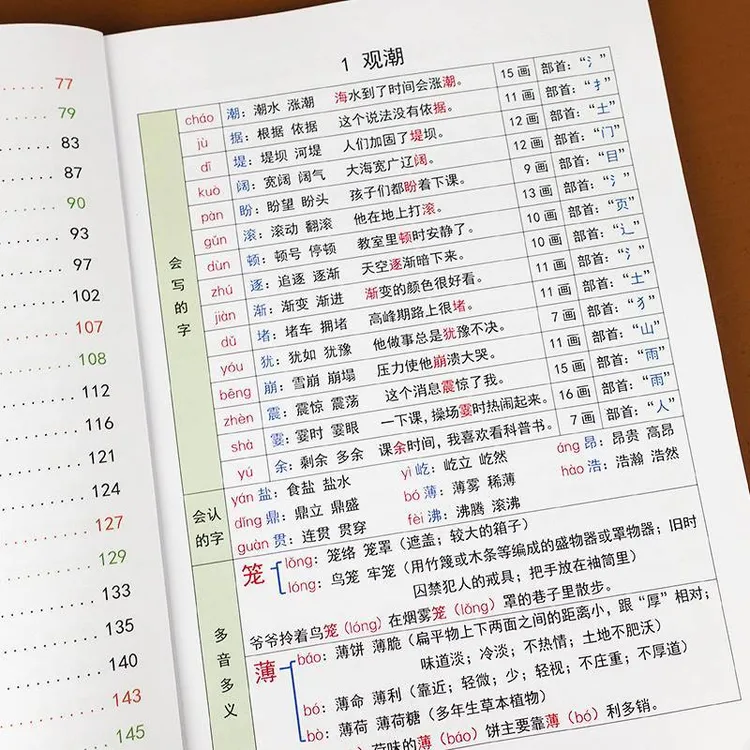 77
79
83
87
90
93
97
102
107
108
112
116
121
124
127
129
133
135
140
143
145
1 观潮
会写的字
cháo 潮：潮水 涨潮 海水到了时间会涨潮。 15 画 部首：“氵”
jù 据：根据 依据 这个说法没有依据。 11 画 部首：“扌”
dī 堤：堤坝 河堤 人们加固了堤坝。 12 画 部首：“土”
kuò 阔：宽阔 阔气 大海宽广辽阔。 12 画 部首：“门”
pàn 盼：盼望 盼头 孩子们都盼着下课。 9 画 部首：“目”
gǔn 滚：滚动 翻滚 他在地上打滚。 13 画 部首：“氵”
dùn 顿：顿号 停顿 教室里顿时安静了。 10 画 部首：“页”
zhú 逐：追逐 逐渐 天空逐渐暗下来。 10 画 部首：“辶”
jiàn 渐：渐变 渐进 渐变的颜色很好看。 11 画 部首：“氵”
dǔ 堵：堵车 拥堵 高峰期路上很堵。 11 画 部首：“土”
yóu 犹：犹如 犹豫 他做事总是犹豫不决。 7 画 部首：“犭”
bēng 崩：雪崩 崩塌 压力使他崩溃大哭。 11 画 部首：“山”
zhèn 震：震惊 震荡 这个消息震惊了我。 15 画 部首：“雨”
shà 霎：霎时 霎眼 一下课，操场霎时热闹起来。 16 画 部首：“雨”
yú 余：剩余 多余 课余时间，我喜欢看科普书。 7 画 部首：“人”
会认的字
yán 盐：食盐 盐水 yì 屹：屹立 屹然 áng 昂：昂贵 高昂
dǐng 鼎：鼎立 鼎盛 bó 薄：薄雾 稀薄 hào 浩：浩瀚 浩然
guàn 贯：连贯 贯穿 fèi 沸：沸腾 滚沸
多音多义
笼
lǒng：笼络 笼罩（遮盖；较大的箱子）
lóng：鸟笼 牢笼（用竹篾或木条等编成的盛物器或罩物器；旧时
囚禁犯人的戒具；把手放在袖筒里）
爷爷拎着鸟笼（lóng）在烟雾笼（lǒng）罩的巷子里散步。
薄
báo：薄饼 薄脆（扁平物上下两面之间的距离小，跟“厚”相对；
味道淡；冷淡；不热情；土地不肥沃）
bó：薄命 薄利（靠近；轻微；少；轻视；不庄重；不厚道）
bò：薄荷 薄荷糖（多年生草本植物）
荷味的薄（báo）饼主要靠薄（bó）利多销。